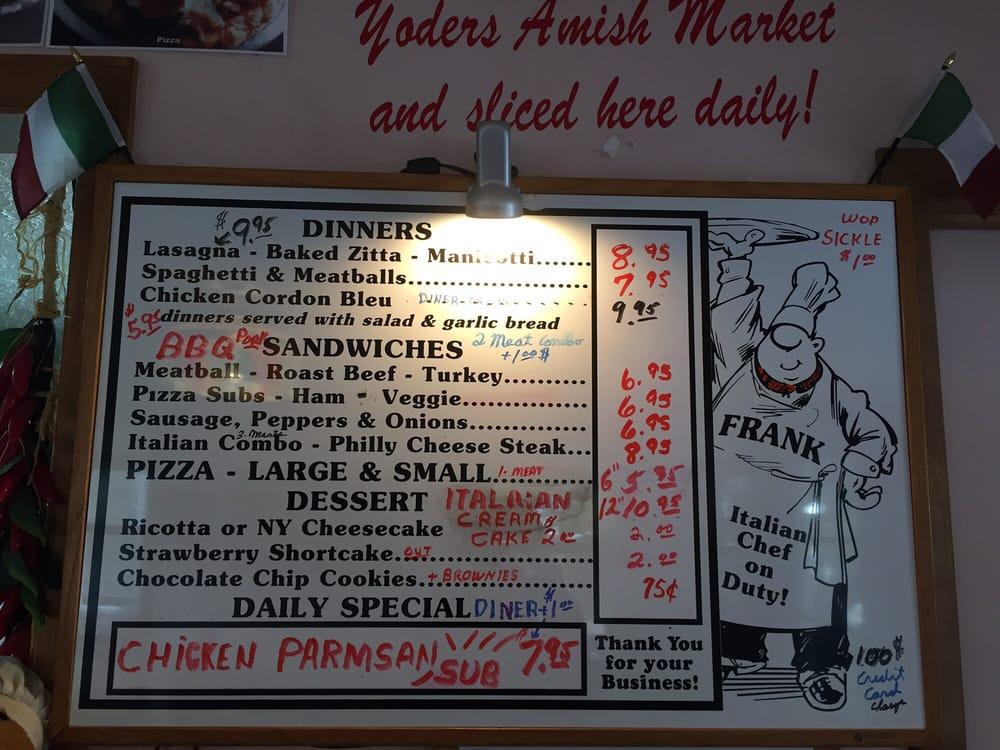 Pizza
Yoders Amish Market
and sliced here daily!
$9.95 DINNERS
Lasagna - Baked Zitta - Manicotti....... 8.95
Spaghetti & Meatballs.................. 7.95
Chicken Cordon Bleu 9.95
dinners served with salad & garlic bread
$5.95 BBQ Pork SANDWICHES 2 Meat Combo +1.00$
Meatball - Roast Beef - Turkey.......... 6.95
Pizza Subs - Ham - Veggie............... 6.95
Sausage, Peppers & Onions.............. 6.95
Italian Combo - Philly Cheese Steak... 8.95
PIZZA - LARGE & SMALL 1-MEAT 6" 5.95
DESSERT ITALIAN 12" 10.95
Ricotta or NY Cheesecake CREAM CAKE 2.00 2.00
Strawberry Shortcake. OUT 2.00
Chocolate Chip Cookies. + BROWNIES 75¢
DAILY SPECIAL DINER+$1.00
CHICKEN PARMSAN SUB 7.95
Thank You
for your
Business!
WOP
SICKLE
$1.00
FRANK
Italian
Chef
on
Duty!
1.00$
Credit
Card
Charge